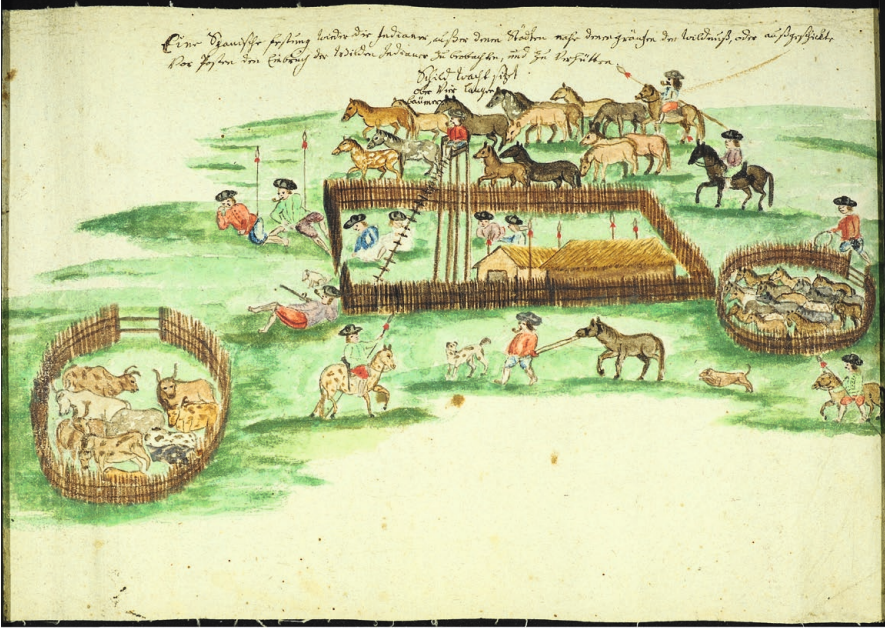 Eine Spanische Festung wieder die Indianer, außer denen Städten nahe denen gräntzen der Wildnuß, oder außgeschickte
Vor Posten den Einbruch der Wilden Indianer zu beobachten, und zu Verhütten
Schild wacht sitzt
ober Vier langen
bäumen